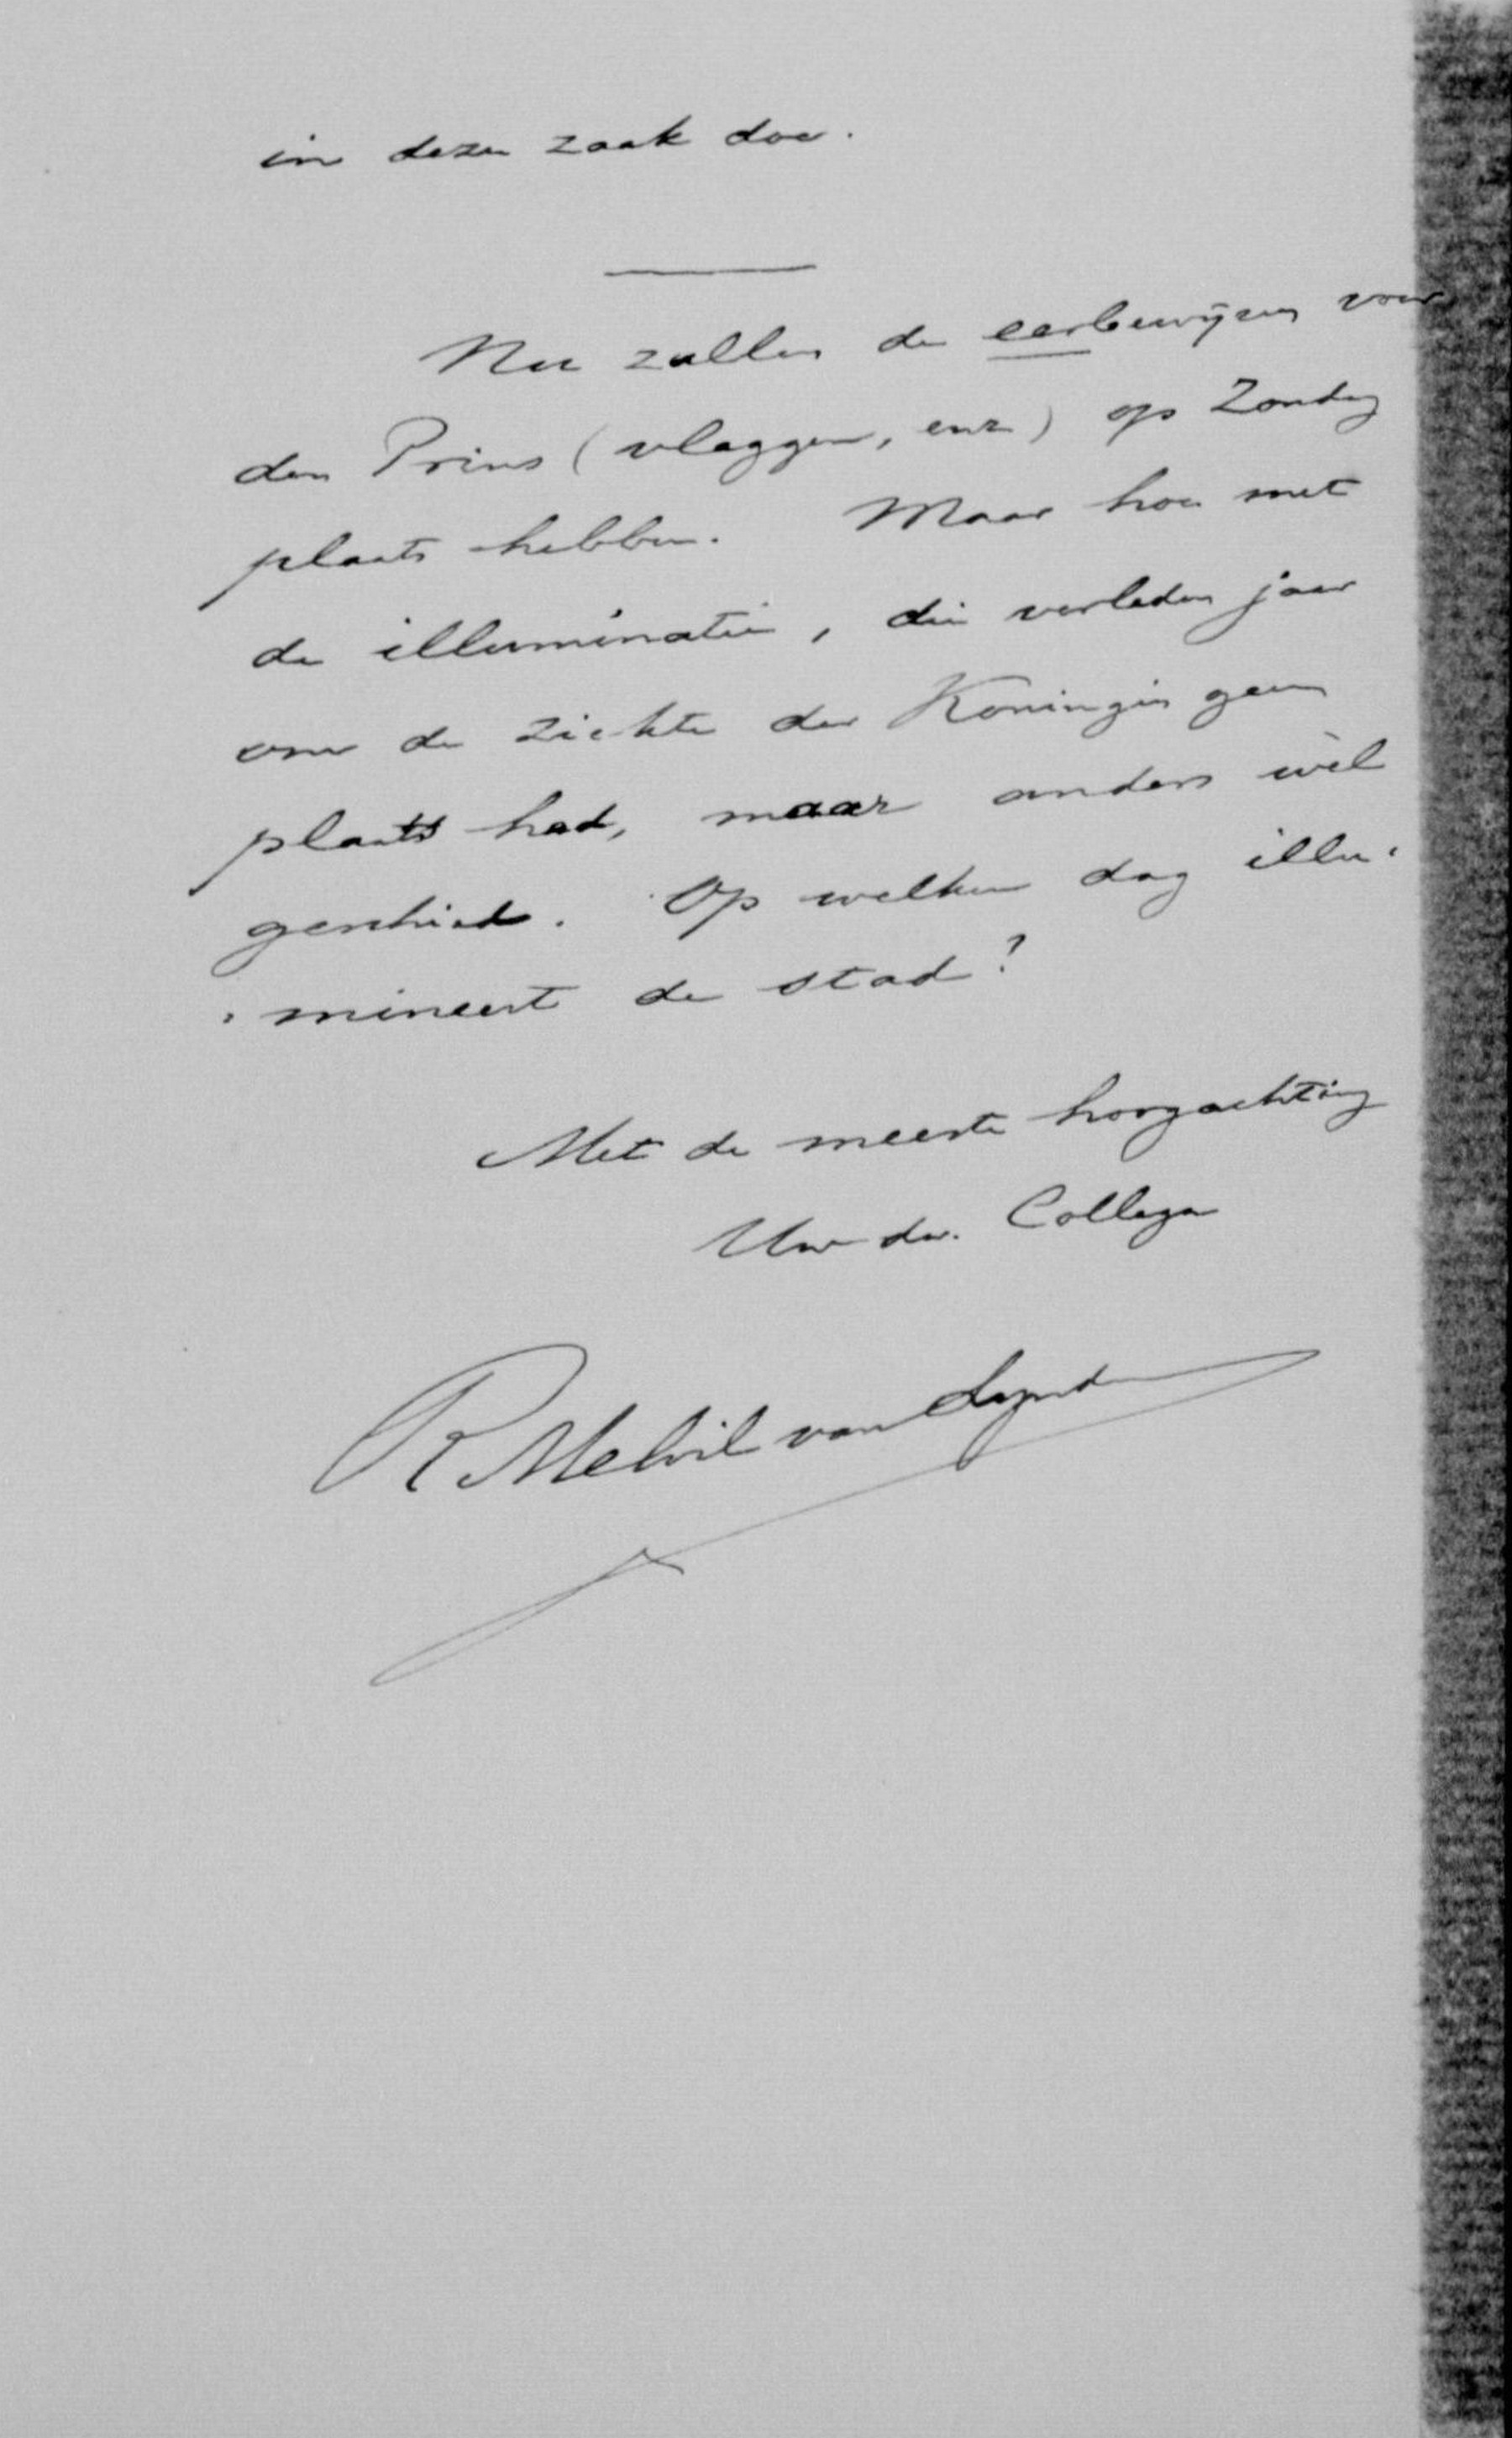 in deze zaak doe.
Nu zullen de eerbewijzen voor
den Prins (vlaggen, enz) op Zondag
plaats hebben. Maar hoe met
de illuminatie, die verleden jaar
om de ziekte der Koningin geen
plaats had, maar anders wèl
geschiedt. Op welken dag illu-
-mineert de stad?
Met de meeste hoogachting
Uw dw. Collega
R Melvil van Lynden